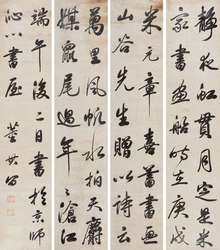 靜夜虹貫月定是米
家書畫船時在庚戌
米元章喜蓄書畫
山谷先生贈以詩云
萬里風帆水拍天麝
煤鼠尾過年年滄江
端午後二日書於京師
沁心書屋 董